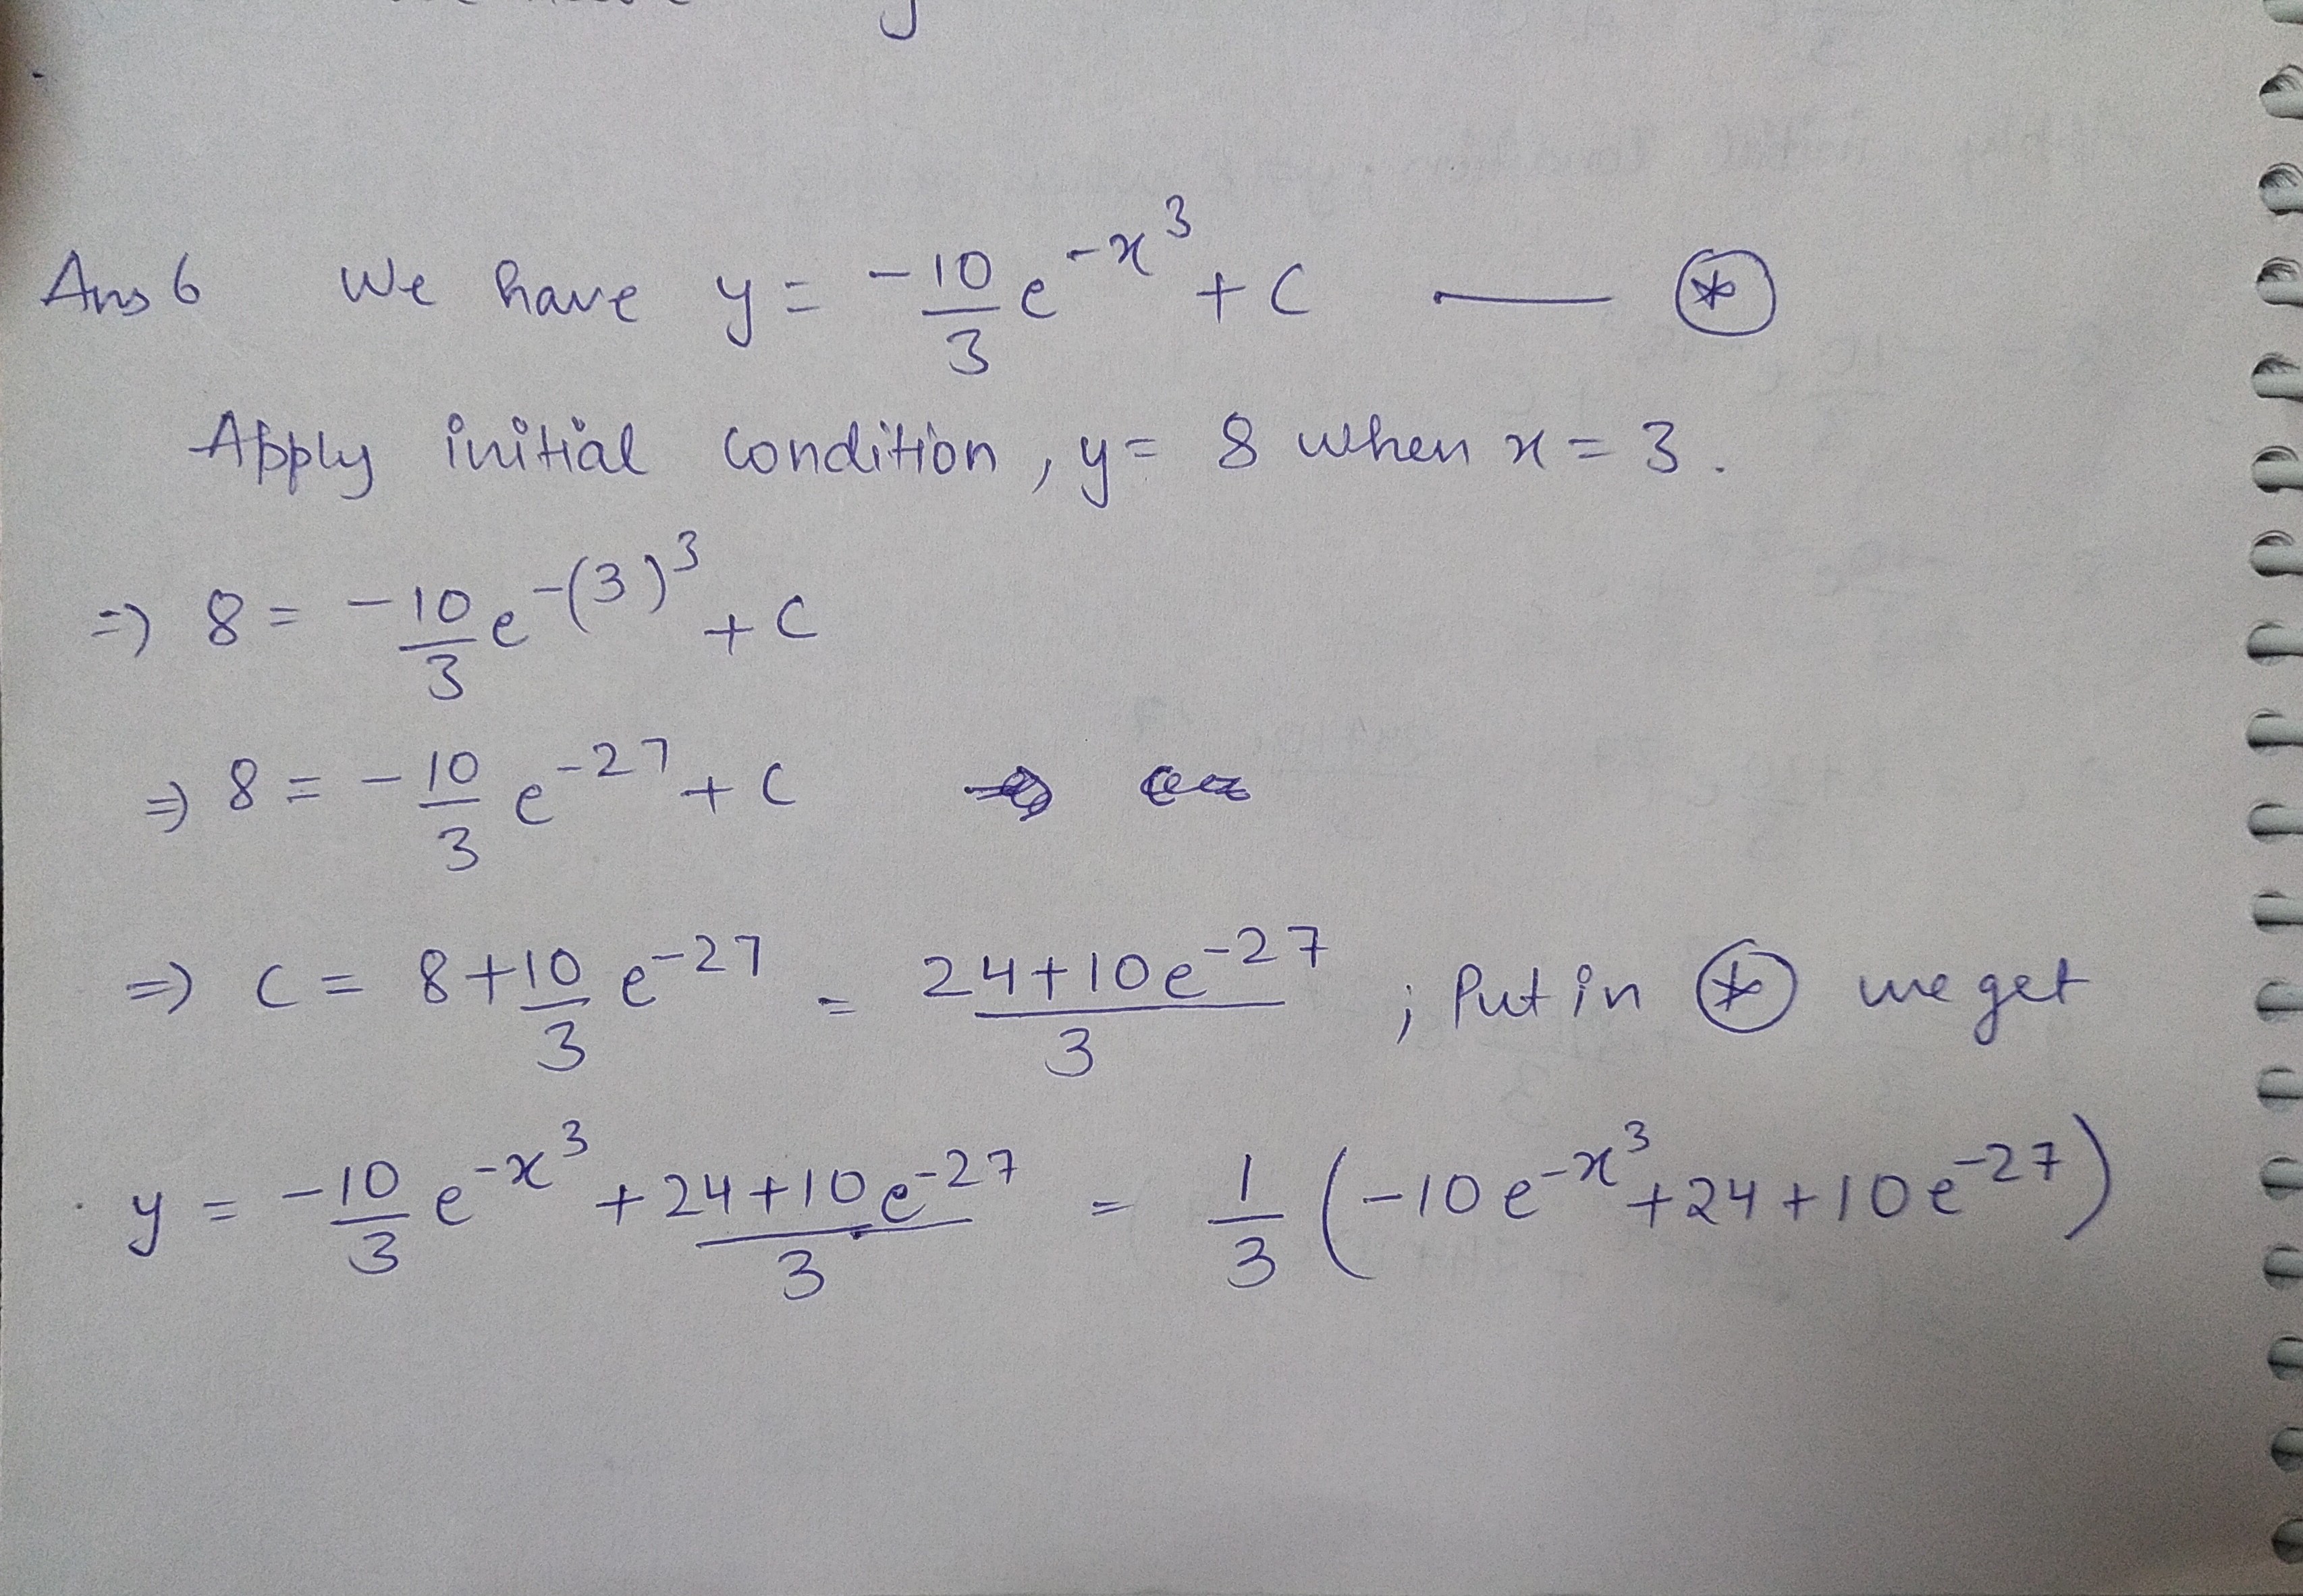 Ans 6 We have y = -10/3 e^{-x^3} + C —— ⊛
Apply initial condition, y = 8 when x = 3.
=> 8 = -10/3 e^{-(3)^3} + C
=> 8 = -10/3 e^{-27} + C
=> C = 8 + 10/3 e^{-27} = (24 + 10e^{-27})/3 ; Put in ⊛ we get
y = -10/3 e^{-x^3} + (24 + 10e^{-27})/3 = 1/3 (-10e^{-x^3} + 24 + 10e^{-27})